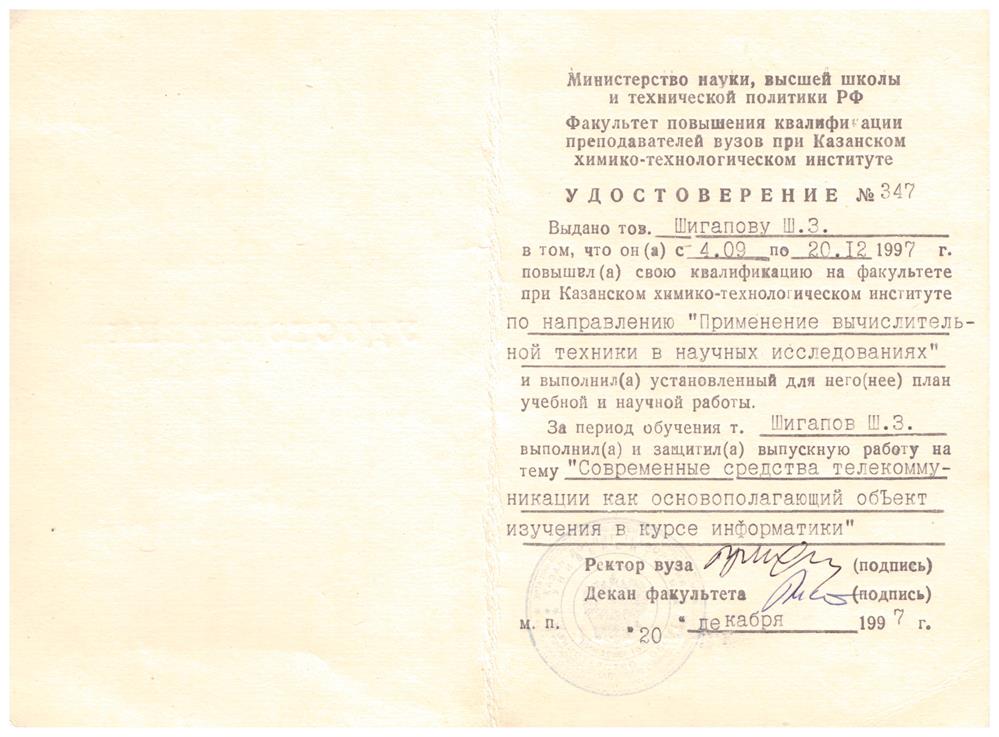 Министерство науки, высшей школы
и технической политики РФ
Факультет повышения квалификации
преподавателей вузов при Казанском
химико-технологическом институте
УДОСТОВЕРЕНИЕ № 347
Выдано тов. Шигапову Ш.З.
в том, что он (а) с 4.09 по 20.I2 1997 г.
повысил(а) свою квалификацию на факультете
при Казанском химико-технологическом институте
по направлению "Применение вычислитель-
ной техники в научных исследованиях"
и выполнил(а) установленный для него(нее) план
учебной и научной работы.
За период обучения т. Шигапов Ш.З.
выполнил(а) и защитил(а) выпускную работу на
тему "Современные средства телекомму-
никации как основополагающий обЪект
изучения в курсе информатики"
Ректор вуза (подпись)
Декан факультета (подпись)
м. п. "20" декабря 1997 г.